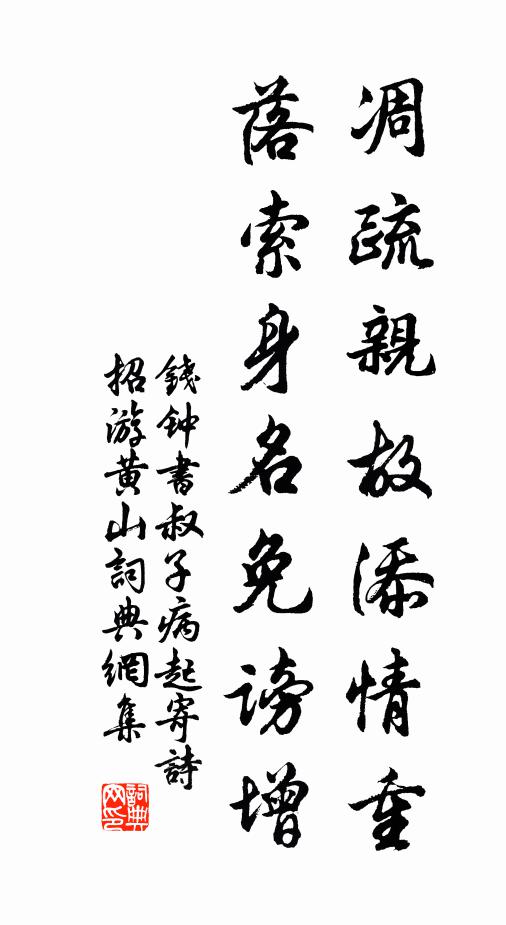 凋疏親故添情重
落索身名免謗增
錢钟書叔子病起寄詩
招游黄山詞典網集
詞典网印